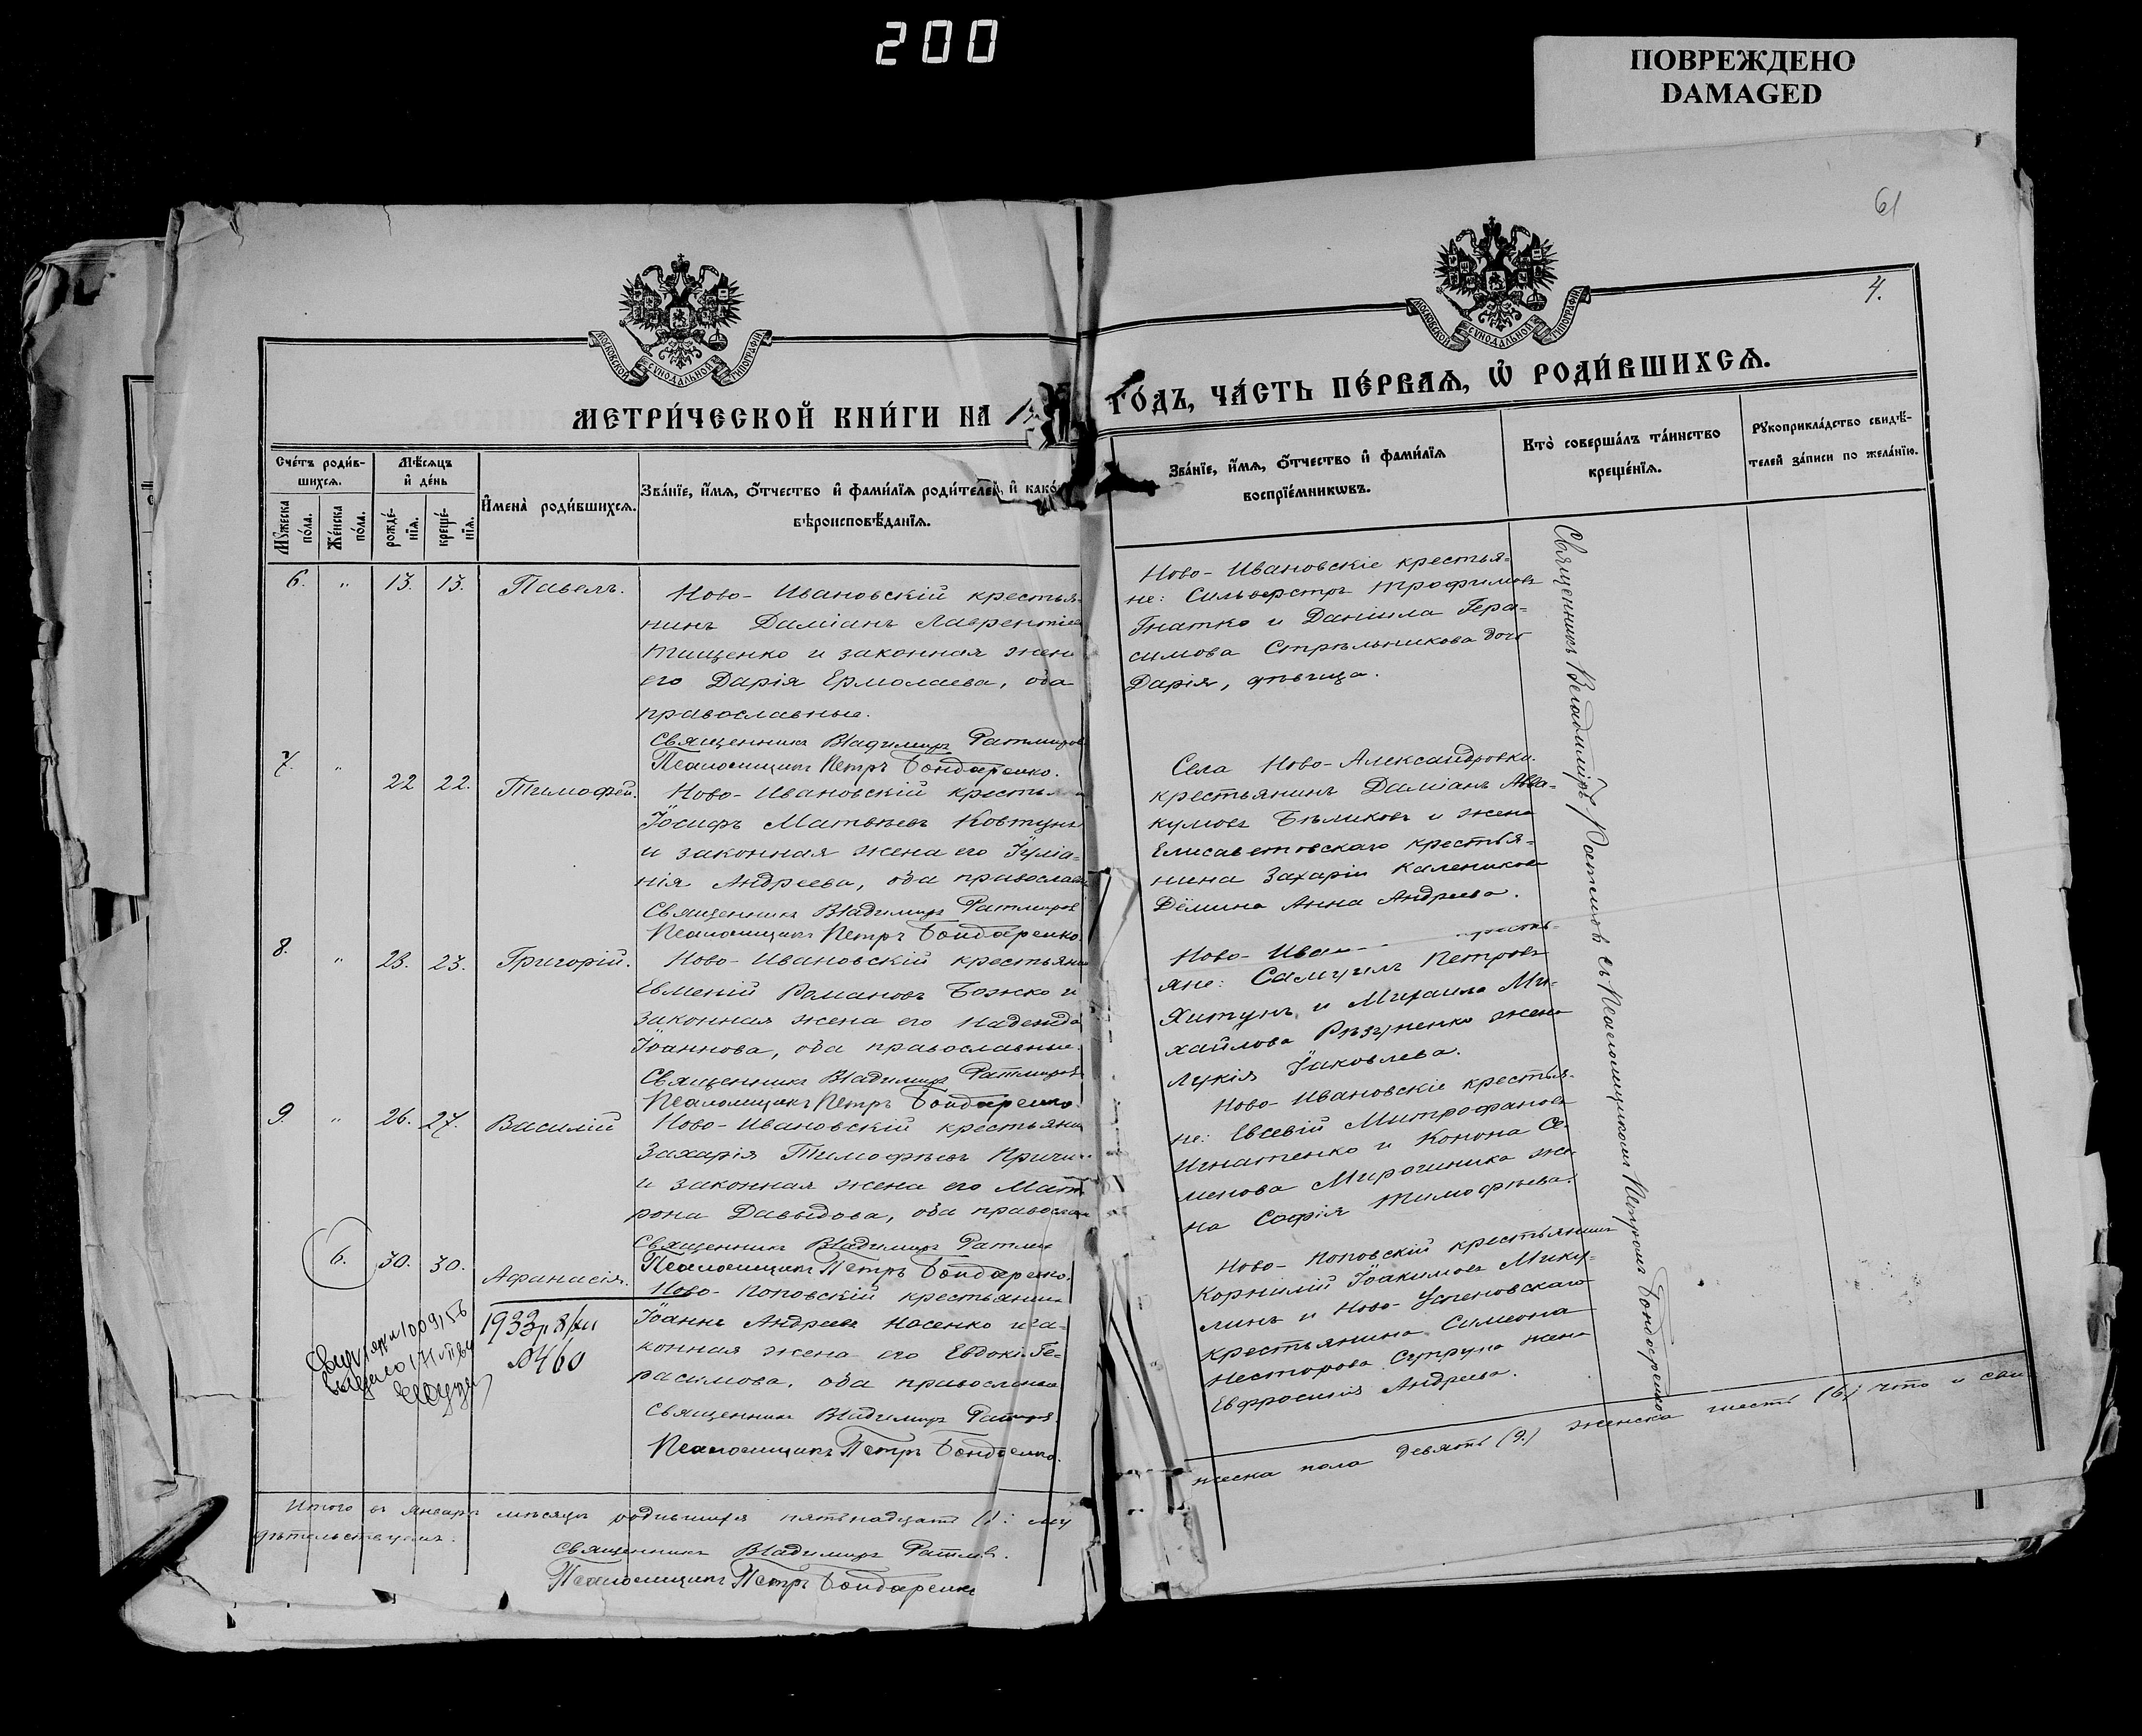 200
ПОВРЕЖДЕНО
DAMAGED
61
4.
МОСКОВСКОЙ СѴНОДАЛЬНОЙ ТИПОГРАФІИ
МОСКОВСКОЙ СѴНОДАЛЬНОЙ ТИПОГРАФІИ
МЕТРИ́ЧЕСКОЙ КНИ́ГИ НА
ГО́ДЪ, ЧА́СТЬ ПЕ́РВАѦ, Ѡ҆ РОДИ́ВШИХСѦ.
Сче́тъ роди́в-
шихсѧ.
Мѣ́сѧцъ
и҆ де́нь
Мꙋ́жеска по́ла.
Же́нска по́ла.
рожде́-
нїѧ.
креще́-
нїѧ.
И҆мена̀ роди́вшихсѧ.
Зва́нїе, и҆́мѧ, ѻ҆́тчество и҆ фами́лїѧ роди́телей, и҆ како́
вѣроисповѣ́данїѧ.
Зва́нїе, и҆́мѧ, ѻ҆́тчество и҆ фами́лїѧ
воспрїе́мникѡвъ.
Кто̀ соверша́лъ та́инство
креще́нїѧ.
Рꙋкоприкла́дство свидѣ́-
телей за́писи по жела́нїю.
6. " 13. 13. Павелъ.
Ново-Ивановскій крестья-
нинъ Даміанъ Лаврентіев
Тищенко и законная жена
его Дарія Ермолаева, оба
православные.
Священникъ Владимиръ Ратмиров
Псаломщикъ Петръ Бондаренко.
Ново-Ивановскіе крестья-
не: Сильверстръ Трофимовъ
Гнатко и Даніила Гера-
симова Стрѣльникова дочь
Дарія, дѣвица.
7. " 22 22. Тимофей.
Ново-Ивановскій крестья
Іосифъ Матвѣевъ Ковтунъ
и законная жена его Іуліа-
нія Андреева, оба православ
Священникъ Владимиръ Ратмиров
Псаломщикъ Петръ Бондаренко.
Села Ново-Александровки
крестьянинъ Даміанъ Авва-
кумовъ Бѣликовъ и жена
Елисаветовскаго крестья-
нина Захарія Каленикова
Дёмина Анна Андреева.
8. " 23. 23. Григорій.
Ново-Ивановскій крестьяни
Евменій Романовъ Божко и
законная жена его Надежда
Іоаннова, оба православные.
Священникъ Владимиръ Ратмиров
Псаломщикъ Петръ Бондаренко
Ново-Иван кресть-
яне: Самуилъ Петровъ
Хитунъ и Михаила Ми-
хайлова Рѣзуненко жена
Лукія Іаковлева.
9. " 26. 27. Василій
Ново-Ивановскій крестьяни
Захарія Тимофѣевъ
и законная жена его Мат
рона Давыдова, оба правосла
Священникъ Владимиръ Ратми
Псаломщикъ Петръ Бондаренко.
Ново-Ивановскіе крестья-
не: Евсевій Митрофановъ
Игнатенко и Конона Се-
менова Мирошника же-
на Софія Тимофѣева.
6. 30. 30. Афанасія.
Ново-Поповскій крестьянин
Іоаннъ Андреевъ Носенко и за-
конная жена его Евдокі Ге-
расимова, оба православные
Священникъ Владимиръ Ратмиров
Псаломщикъ Петръ Бондаренко.
Ново-Поповскій крестьянинъ
Корнилій Іоакимовъ Мику-
линъ и Ново-Успеновскаго
крестьянина Симеона
Несторова Струпа жена
Евфросинія Андреева.
1933
№ 460
Священникъ Владиміръ Ратмировъ съ Псаломщикомъ Петромъ Бондаренко
Итого въ январѣ мѣсяцѣ родившихся пятнадцать му
жеска пола девять (9.) женска шесть (6.) что и сви
дѣтельствуемъ:
Священникъ Владимиръ Ратмв.
Псаломщикъ Петръ Бондаренко